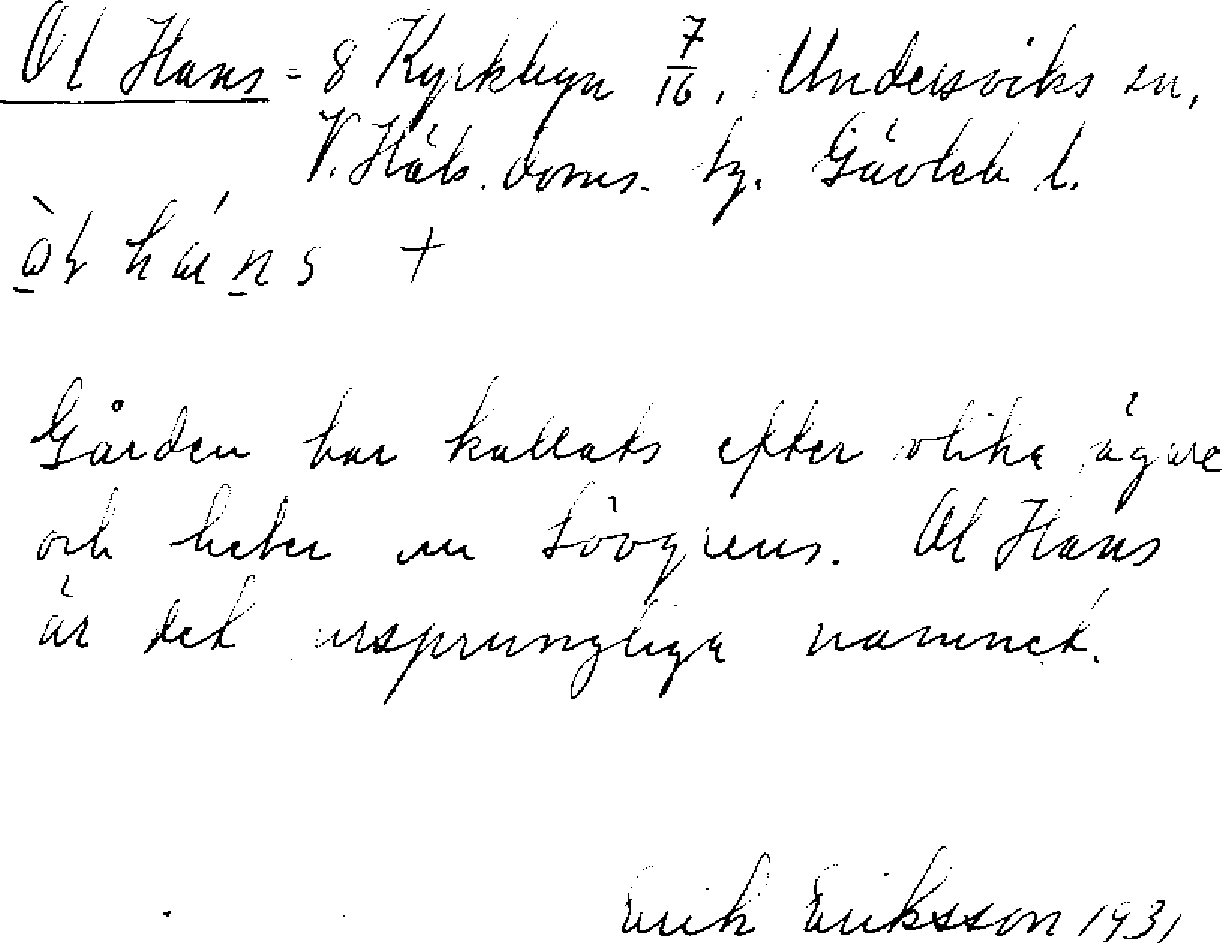 Ol Hans = 8 Kyrkbyn 7/16, Undersviks sn,
V. Häls. doms. hg. Gävleb l.
håns +
Gården har kallats efter olika ägare
och heter nu Lövgrens. Ol Hans
är det ursprungliga namnet.
Erik Eriksson 1931